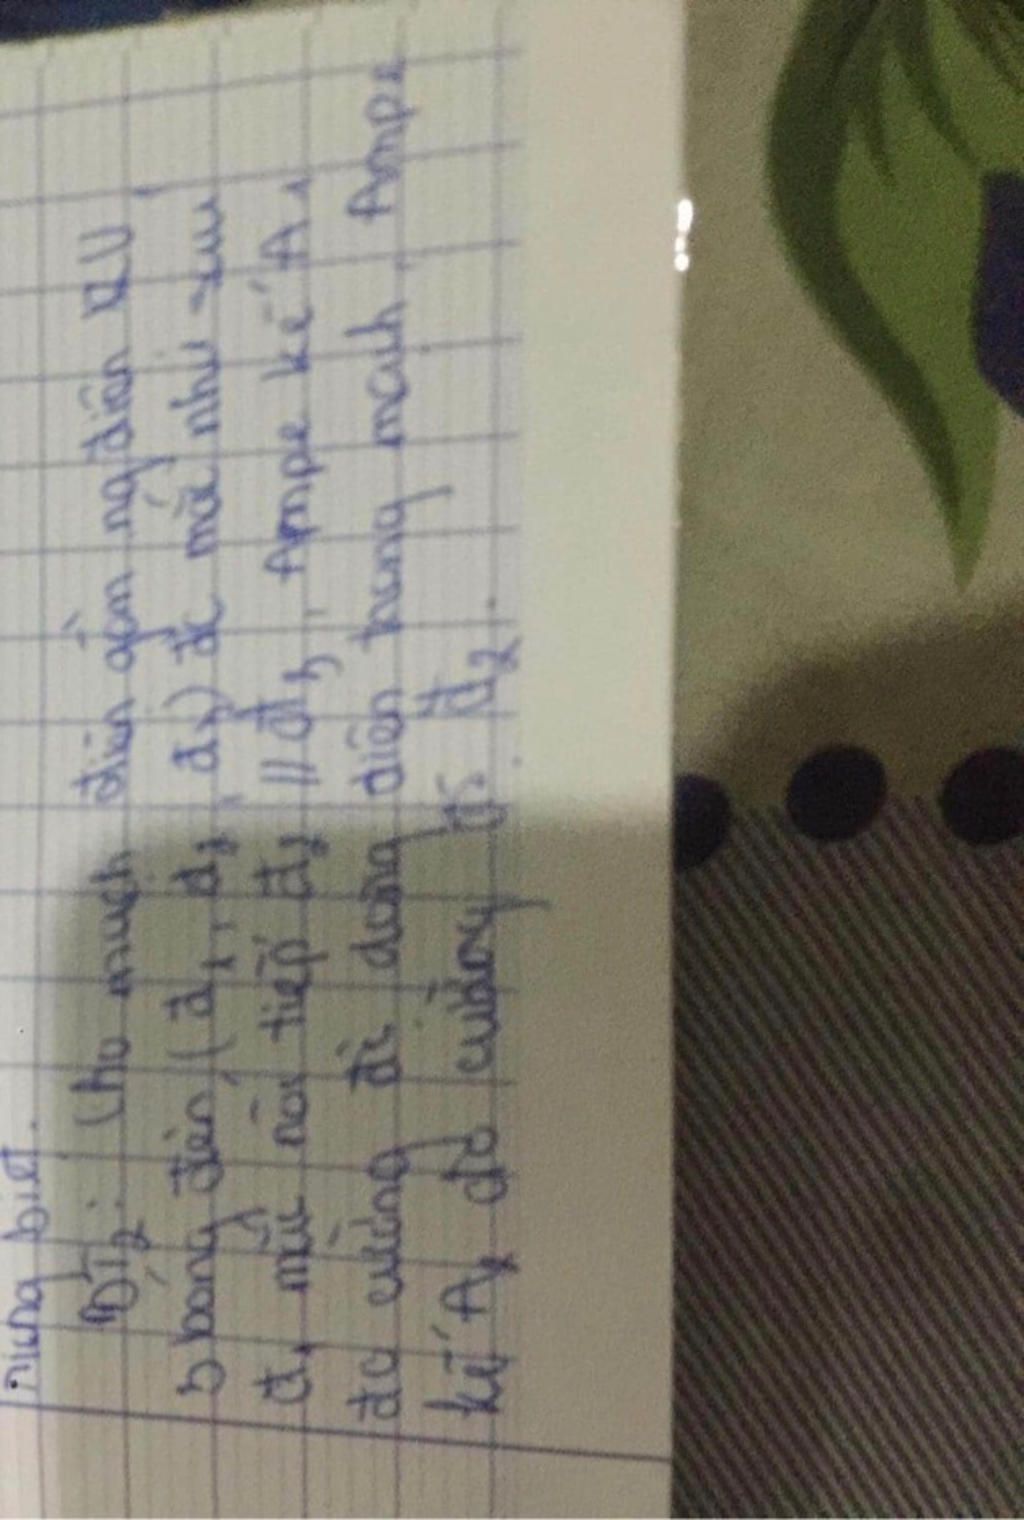 riêng biệt.
BT2: Cho mạch điện gồm ng điện 12V
3 bóng đèn (đ1, đ2, đ3) đc mắc như sau
đ1 mắc nối tiếp đ2 // đ3, Ampe kế A1
đo cường độ dòng điện trong mạch, Ampe
kế A2 đo cường độ đ2.